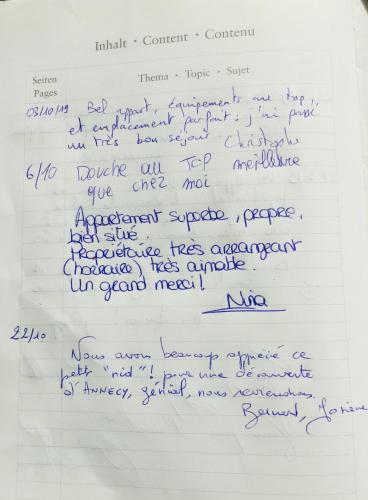 Inhalt · Content · Contenu
Seiten
Pages
Thema · Topic · Sujet
03/10/19 Bel appart, équipements au top,
et emplacement parfait. j'ai passé
un très bon séjour Christophe
6/10 Douche au TOP meilleure
que chez moi
Appartement superbe, propre,
bien situé.
Propriétaire très arrangeant
(horraire) très aimable.
Un grand merci!
Nina
22/10
Nous avons beaucoup apprécié ce
petit "nid"! pour une découverte
d'ANNECY, génial, nous reviendrons.
Bernard, Josiane